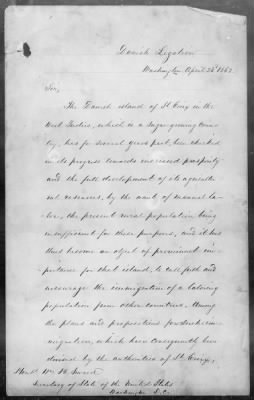 Danish Legation
Washington April 26th 1862.
Sir,
The Danish island of St Croix in the
West Indies, which is a sugar growing coun-
try, has for several years past, been checked
in its progress towards increased prosperity
and the full development of its agricultu-
ral resources, by the want of manual la-
bor, the present rural population being
insufficient for these purposes, and it has
thus become an object of prominent im-
portance for that island, to call forth and
encourage the immigration of a laboring
population from other countries. Among
the plans and propositions for such im-
migration, which have consequently been
devised by the authorities of St Croix,
Honbl. Wm H. Seward
Secretary of State of the United States
Washington D.C.